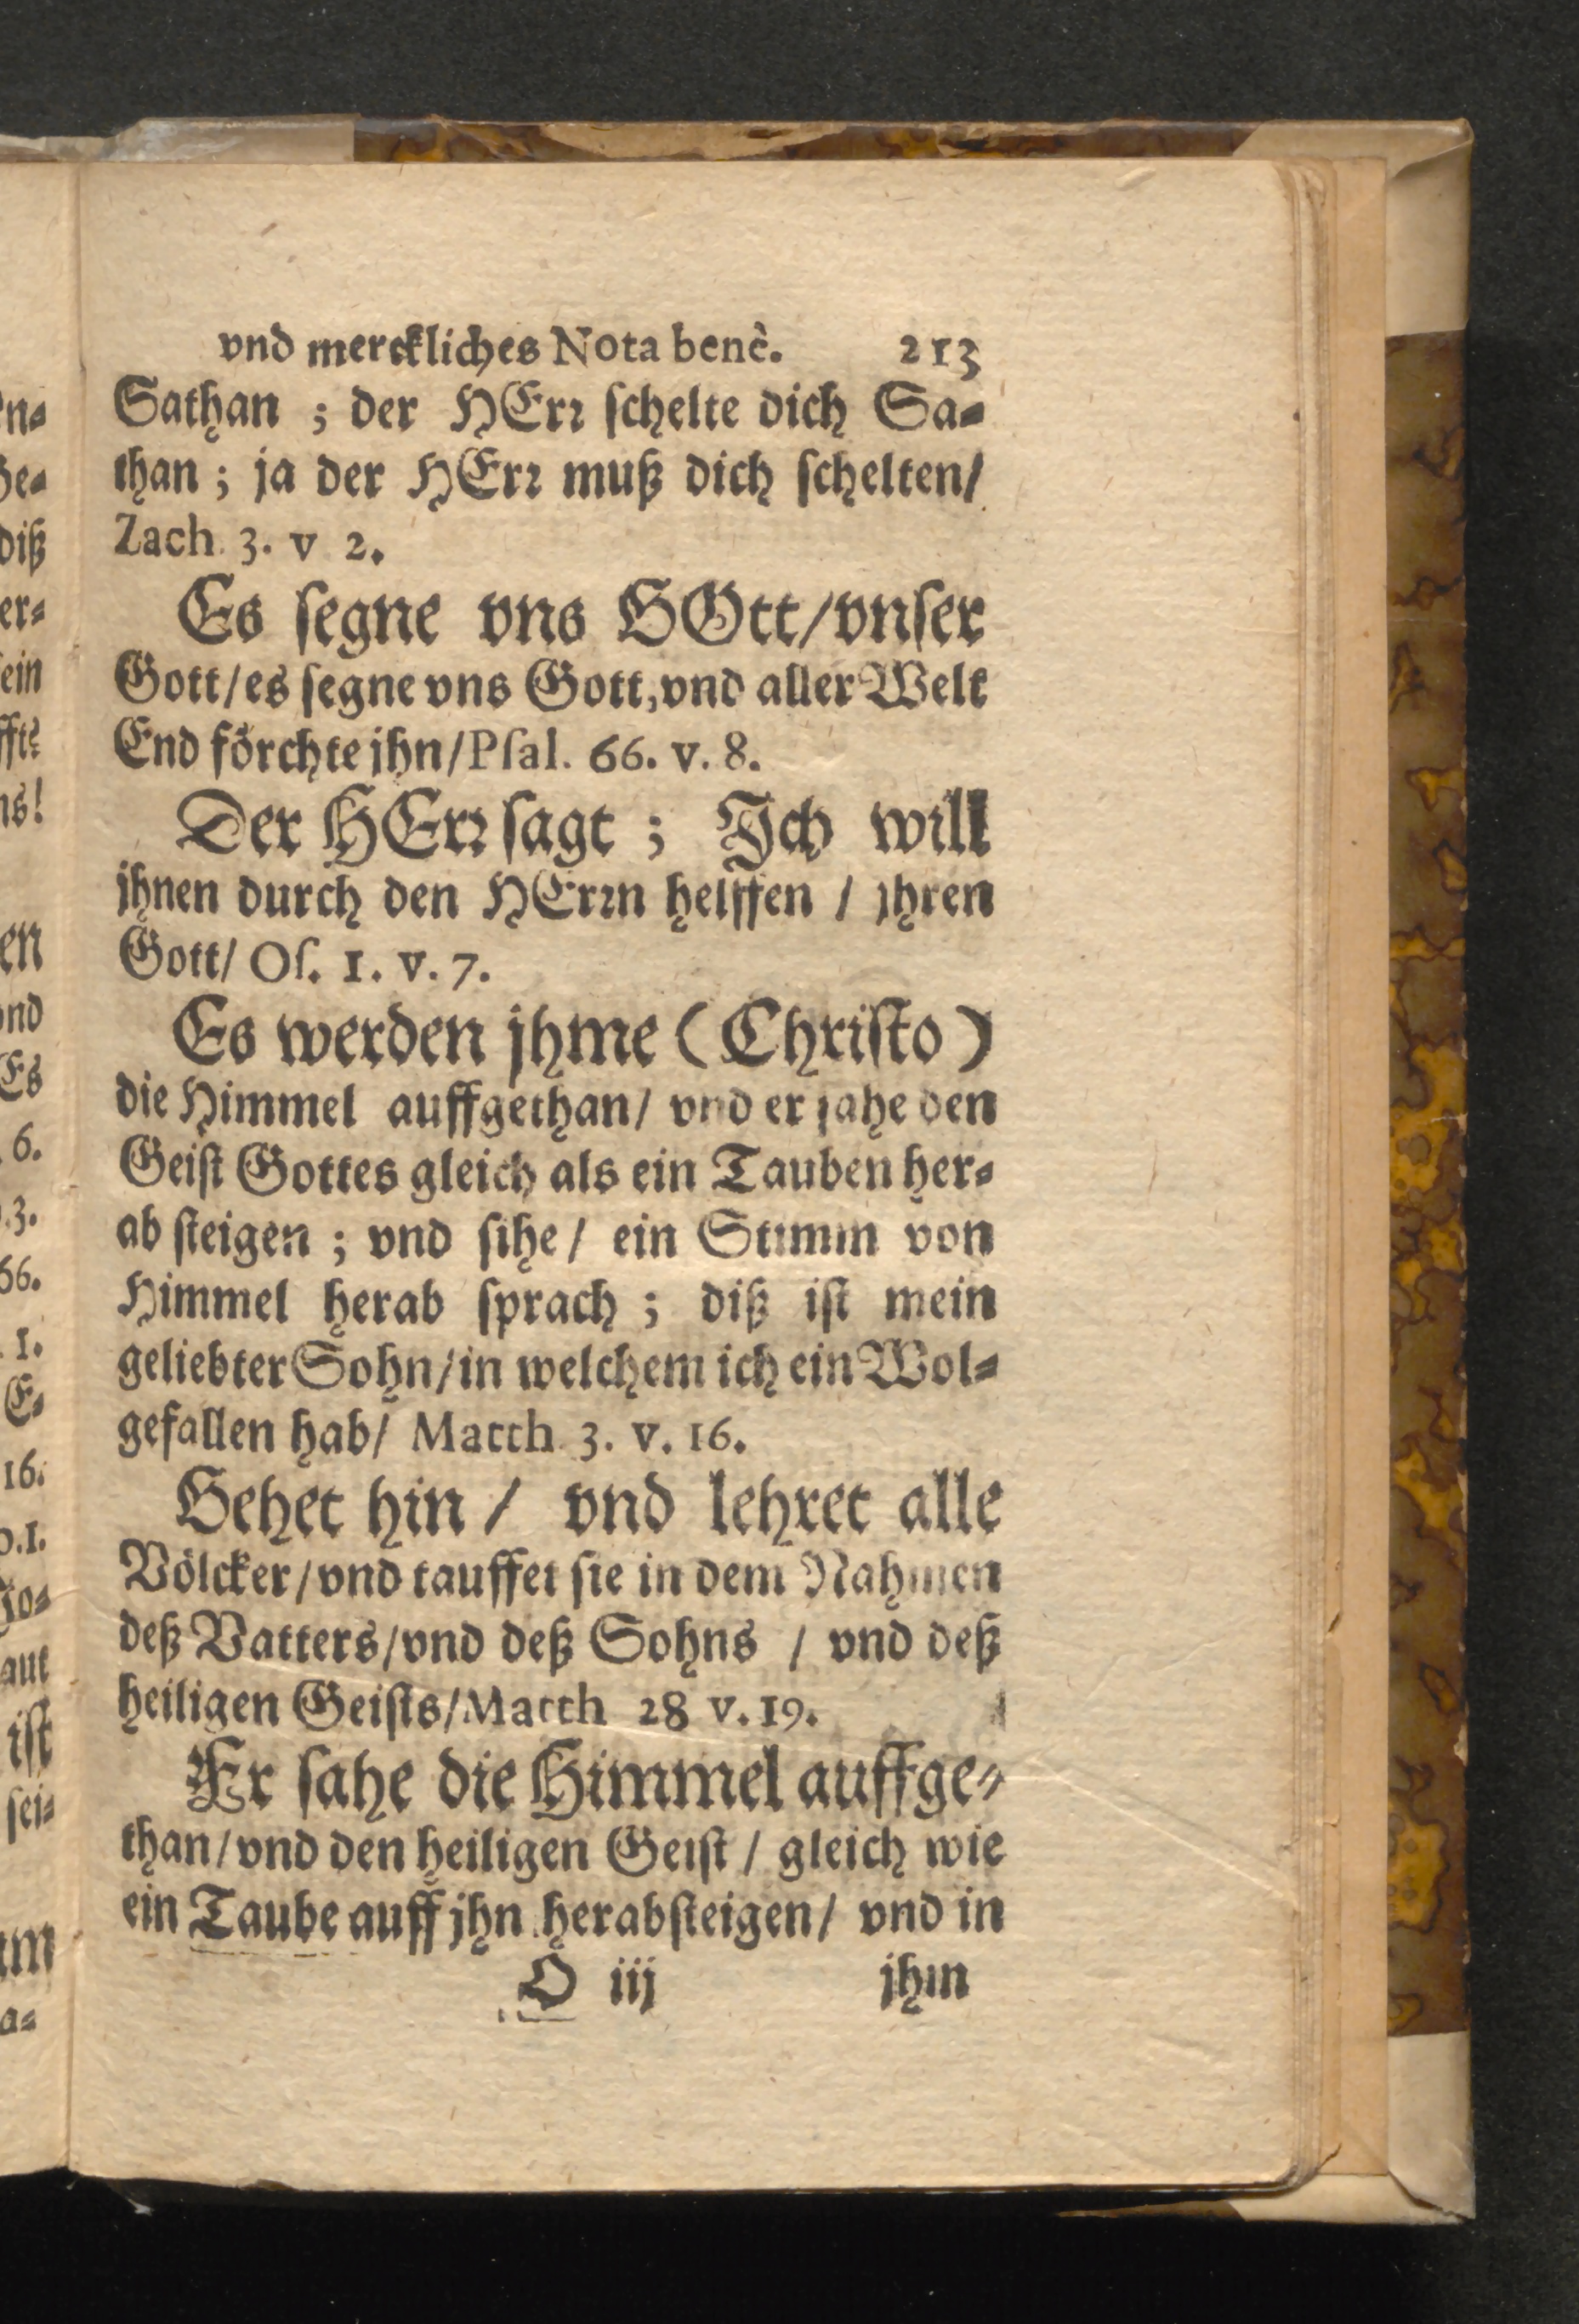 vnd merckliches Nota benè. 213
Sathan ; der HErꝛ ſchelte dich Sa⸗
than ; ja der HErꝛ muß dich ſchelten/
Zach. 3. v 2.
Es ſegne vns GOtt/vnſer
Gott/es ſegne vns Gott,vnd aller Welt
End förchte jhn/Pſal. 66. v. 8.
Der HErꝛ ſagt ; Ich will
jhnen durch den HErꝛn helffen / jhren
Gott/ Oſ. 1. v. 7.
Es werden jhme (Chriſto)
die Himmel auffgethan/ vnd er ſahe den
Geiſt Gottes gleich als ein Tauben her⸗
ab ſteigen ; vnd ſihe/ ein Stimm von
Himmel herab ſprach ; diß iſt mein
geliebter Sohn/in welchem ich ein Wol⸗
gefallen hab/ Matth. 3. v. 16.
Gehet hin / vnd lehret alle
Völcker/vnd tauffet ſie in dem Nahmen
deß Vatters/vnd deß Sohns / vnd deß
heiligen Geiſts/Matth 28 v. 19.
Er ſahe die Himmel auffge⸗
than/vnd den heiligen Geiſt / gleich wie
ein Taube auff jhn herabſteigen/ vnd in
O iij jhm